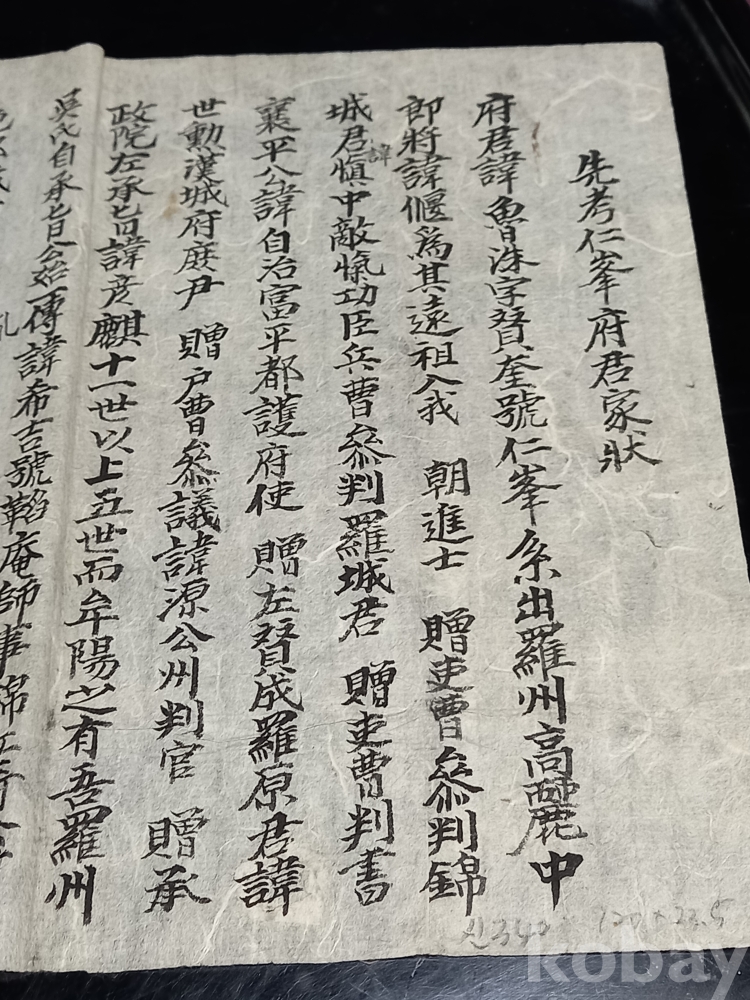 先考仁峯府君家狀
府君諱魯洙字賛奎號仁峯系出羅州高麗中
郎將諱偃爲其遠祖入我 朝進士 贈吏曹叅判錦
城君諱愼中敵愾功臣兵曹叅判羅城君 贈吏曹判書
襄平公諱自治富平都護府使 贈左賛成羅原君諱
世勲漢城府庶尹 贈戶曹叅議諱源公州判官 贈承
政院左承旨諱彦麒十一世以上五世而牟陽之有吾羅州
吳氏自承旨公始一傳諱希吉號韜庵師事
kobay